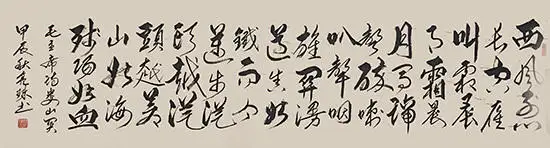 西风烈
长空雁
叫霜晨
月霜晨
月马蹄
声碎喇
叭声咽
雄关漫
道真如
铁而今
迈步从
头越从
头越苍
山如海
残阳如血
毛主席词娄山关
甲辰秋书